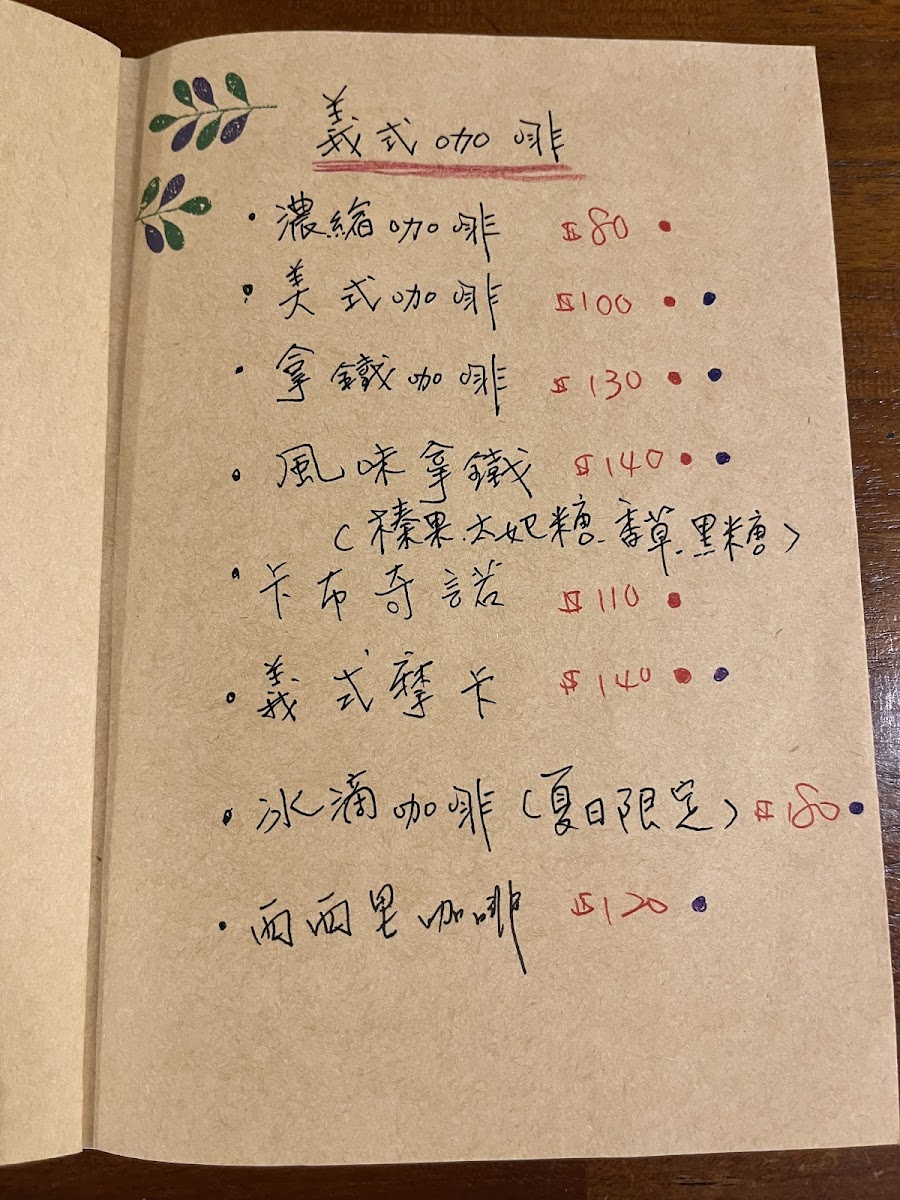 義式咖啡
• 濃縮咖啡 $80 •
• 美式咖啡 $100 • •
• 拿鐵咖啡 $130 • •
• 風味拿鐵 $140 • •
(榛果.太妃糖.香草.黑糖)
• 卡布奇諾 $110 •
• 義式摩卡 $140 • •
• 冰滴咖啡(夏日限定) $180 •
• 西西里咖啡 $120 •